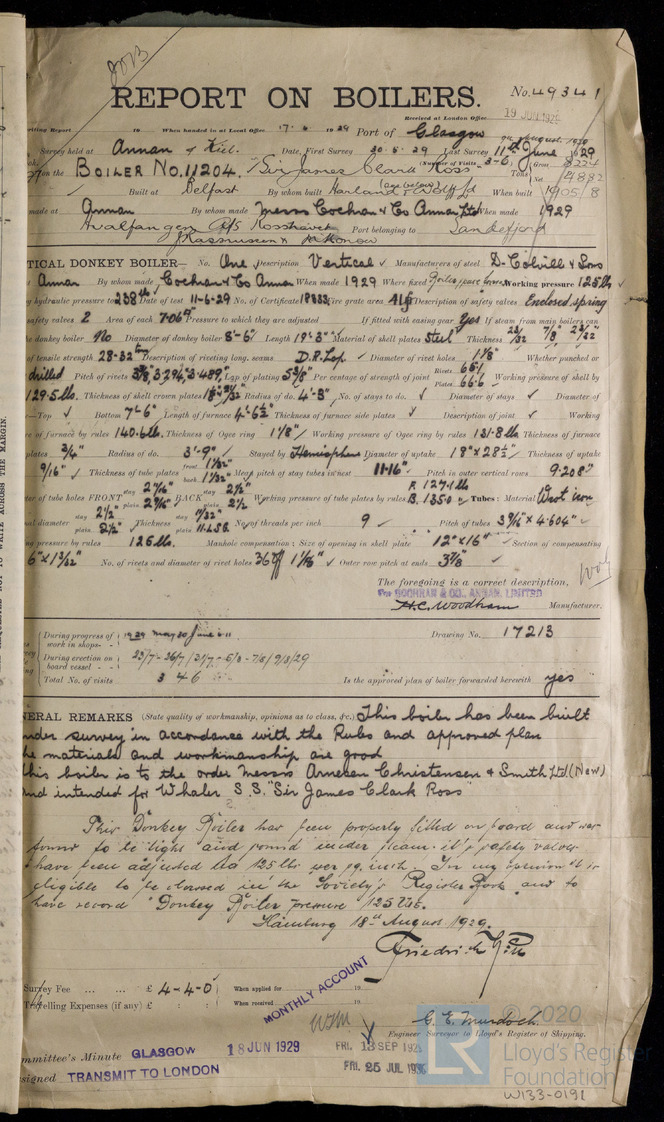 REPORT ON BOILERS.
No. 49341
Received at London Office 19 JUN 1929
When handed in at Local Office 17. 6 1929 Port of Glasgow
Survey held at Annan & Kiel. Date, First Survey 30-5-29 Last Survey 11th June 1929
on the BOILER No. 11204. "Sir James Clark Ross" (Number of Visits 3-6) Tons Gross 8224 Net 4882
Built at Belfast By whom built Harland & Wolff Ld When built 1905/8
made at Annan By whom made Messrs Cochran & Co Annan Ltd When made 1929
Hvalfangen A/S Rosshavet Port belonging to Sandefjord
TICAL DONKEY BOILER— No. One Description Vertical Manufacturers of steel D. Colvill & Sons
Annan By whom made Cochran & Co Annan When made 1929 Where fixed Working pressure 125 lb
by hydraulic pressure to 238 lb Date of test 11-6-29 No. of Certificate 18333 Fire grate area Description of safety valves Enclosed spring
safety valves 2 Area of each 7.06 Pressure to which they are adjusted If fitted with easing gear Yes If steam from main boilers can
donkey boiler No Diameter of donkey boiler 8'-6" Length 19'-3" Material of shell plates Steel Thickness 23/32 7/8 23/32"
of tensile strength 28-32 Description of riveting long. seams D.R. Lap Diameter of rivet holes 1 1/8" Whether punched or
drilled Pitch of rivets 3 3/8, 3.294, 3.489" Lap of plating 5 3/8" Per centage of strength of joint Rivets 65.1 Plates 66.6 Working pressure of shell by
129.5 lbs. Thickness of shell crown plates Radius of do. 4'-3" No. of stays to do. Diameter of stays Diameter of
—Top Bottom 7'-6" Length of furnace 4'-6 1/2" Thickness of furnace side plates Description of joint Working
of furnace by rules 140.6 lb. Thickness of Ogee ring 1 1/8" Working pressure of Ogee ring by rules 131.8 lb Thickness of furnace
plates 3/4" Radius of do. 3'-9" Stayed by Hemisphere Diameter of uptake 18" x 28 1/2" Thickness of uptake
9/16" Thickness of tube plates front 11/32" back 11/32" Mean pitch of stay tubes in nest 11.16" Pitch in outer vertical rows 9.208"
of tube holes FRONT stay 2 9/16" plain 2 9/16" BACK stay 2 1/2" plain 2 1/2 Working pressure of tube plates by rules F. 127.1 lb B. 135.0 Tubes: Material Wrot iron
diameter stay 2 1/2" plain 2 1/2" Thickness stay 9/32" plain 11 LSG No. of threads per inch 9 Pitch of tubes 3 9/16" x 4.604"
pressure by rules 126 lb. Manhole compensation: Size of opening in shell plate 12" x 16" Section of compensating
6" x 1 3/32" No. of rivets and diameter of rivet holes 36 off 1 1/16" Outer row pitch at ends 3 7/8"
The foregoing is a correct description,
The COCHRAN & CO., ANNAN, LIMITED
H.C. Woodham Manufacturer.
During progress of work in shops - - 1929 May 30 June 6 11 Drawing No. 17213
During erection on board vessel - - 23/7 - 26/7 / 31/7 - 5/8 - 7/8 / 9/8/29
Total No. of visits 3 + 6 Is the approved plan of boiler forwarded herewith yes
NERAL REMARKS (State quality of workmanship, opinions as to class, &c.) This boiler has been built
under survey in accordance with the Rules and approved plan
the materials and workmanship are good
This boiler is to the order Messrs Arnesen Christensen & Smith Ltd (New)
and intended for Whaler S.S. "Sir James Clark Ross"
This Donkey Boiler has been properly fitted on board and was
found to be tight and sound under steam. it's safety valves
have been adjusted to 125 lbs per sq. inch. In my opinion it is
eligible to be classed in the Society's Register Book and to
have record "Donkey Boiler pressure 125 lbs.
Hamburg 18th August 1929.
Survey Fee ... ... £ 4-4-0 When applied for 19
Travelling Expenses (if any) £ : : When received 19
MONTHLY ACCOUNT
C. E. Murdoch.
Engineer Surveyor to Lloyd's Register of Shipping.
mmittee's Minute GLASGOW 18 JUN 1929 FRI. 13 SEP 1929
signed TRANSMIT TO LONDON FRI. 25 JUL 1930
© 2020
LR
Lloyd's Register
Foundation
W133-0191